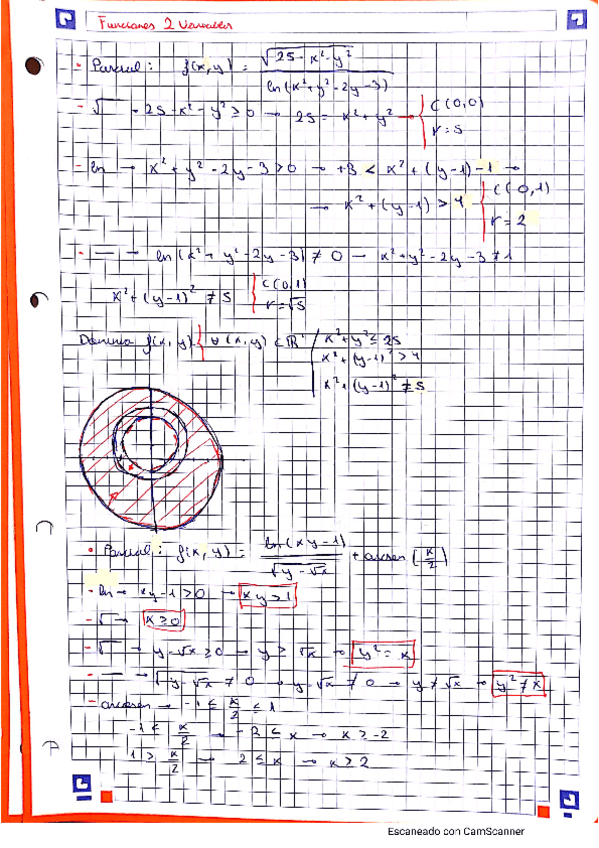 Funciones 2 Variables
- Parcial: f(x,y) = √(25 - x² - y²) / ln(x² + y² - 2y - 3)
- √ → 25 - x² - y² ≥ 0 → 25 = x² + y² → { C(0,0) r = 5
- ln → x² + y² - 2y - 3 > 0 → +3 < x² + (y-1) - 1 →
→ x² + (y-1) > 4 { C(0,1) r = 2
- — → ln(x² + y² - 2y - 3) ≠ 0 → x² + y² - 2y - 3 ≠ 1
x² + (y-1)² ≠ 5 { C(0,1) r = √5
Dominio f(x,y) { ∀(x,y) ⊂ ℝ² / x² + y² ≤ 25
x² + (y-1)² > 4
x² + (y-1)² ≠ 5
• Parcial: f(x,y) = ln(xy-1) / √(y - √x) + arcsen(x/2)
- ln → xy - 1 > 0 → xy > 1
- √ → x ≥ 0
- √ → y - √x ≥ 0 → y ≥ √x → y² = x
- — → √(y - √x) ≠ 0 → y - √x ≠ 0 → y ≠ √x → y² ≠ x
- arcsen → -1 ≤ x/2 ≤ 1
-1 ≤ x/2 → -2 ≤ x → x ≥ -2
1 ≥ x/2 → 2 ≤ x → x ≥ 2
Escaneado con CamScanner